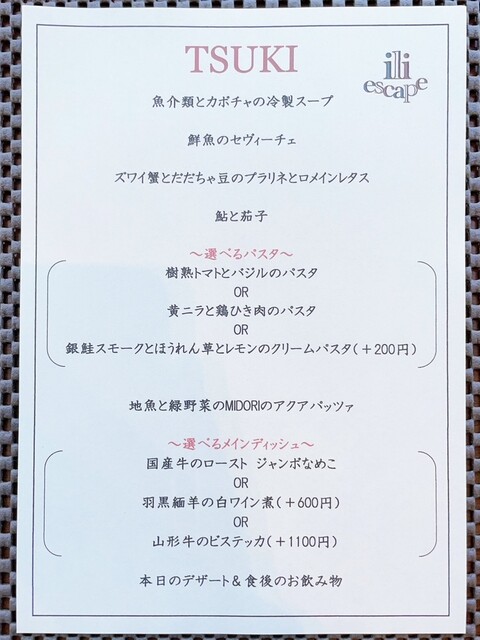 TSUKI
ili
escape
魚介類とカボチャの冷製スープ
鮮魚のセヴィーチェ
ズワイ蟹とだだちゃ豆のプラリネとロメインレタス
鮎と茄子
～選べるパスタ～
樹熟トマトとバジルのパスタ
OR
黄ニラと鶏ひき肉のパスタ
OR
銀鮭スモークとほうれん草とレモンのクリームパスタ(＋200円)
地魚と緑野菜のMIDORIのアクアパッツァ
～選べるメインディッシュ～
国産牛のロースト ジャンボなめこ
OR
羽黒緬羊の白ワイン煮(＋600円)
OR
山形牛のビステッカ(＋1100円)
本日のデザート＆食後のお飲み物